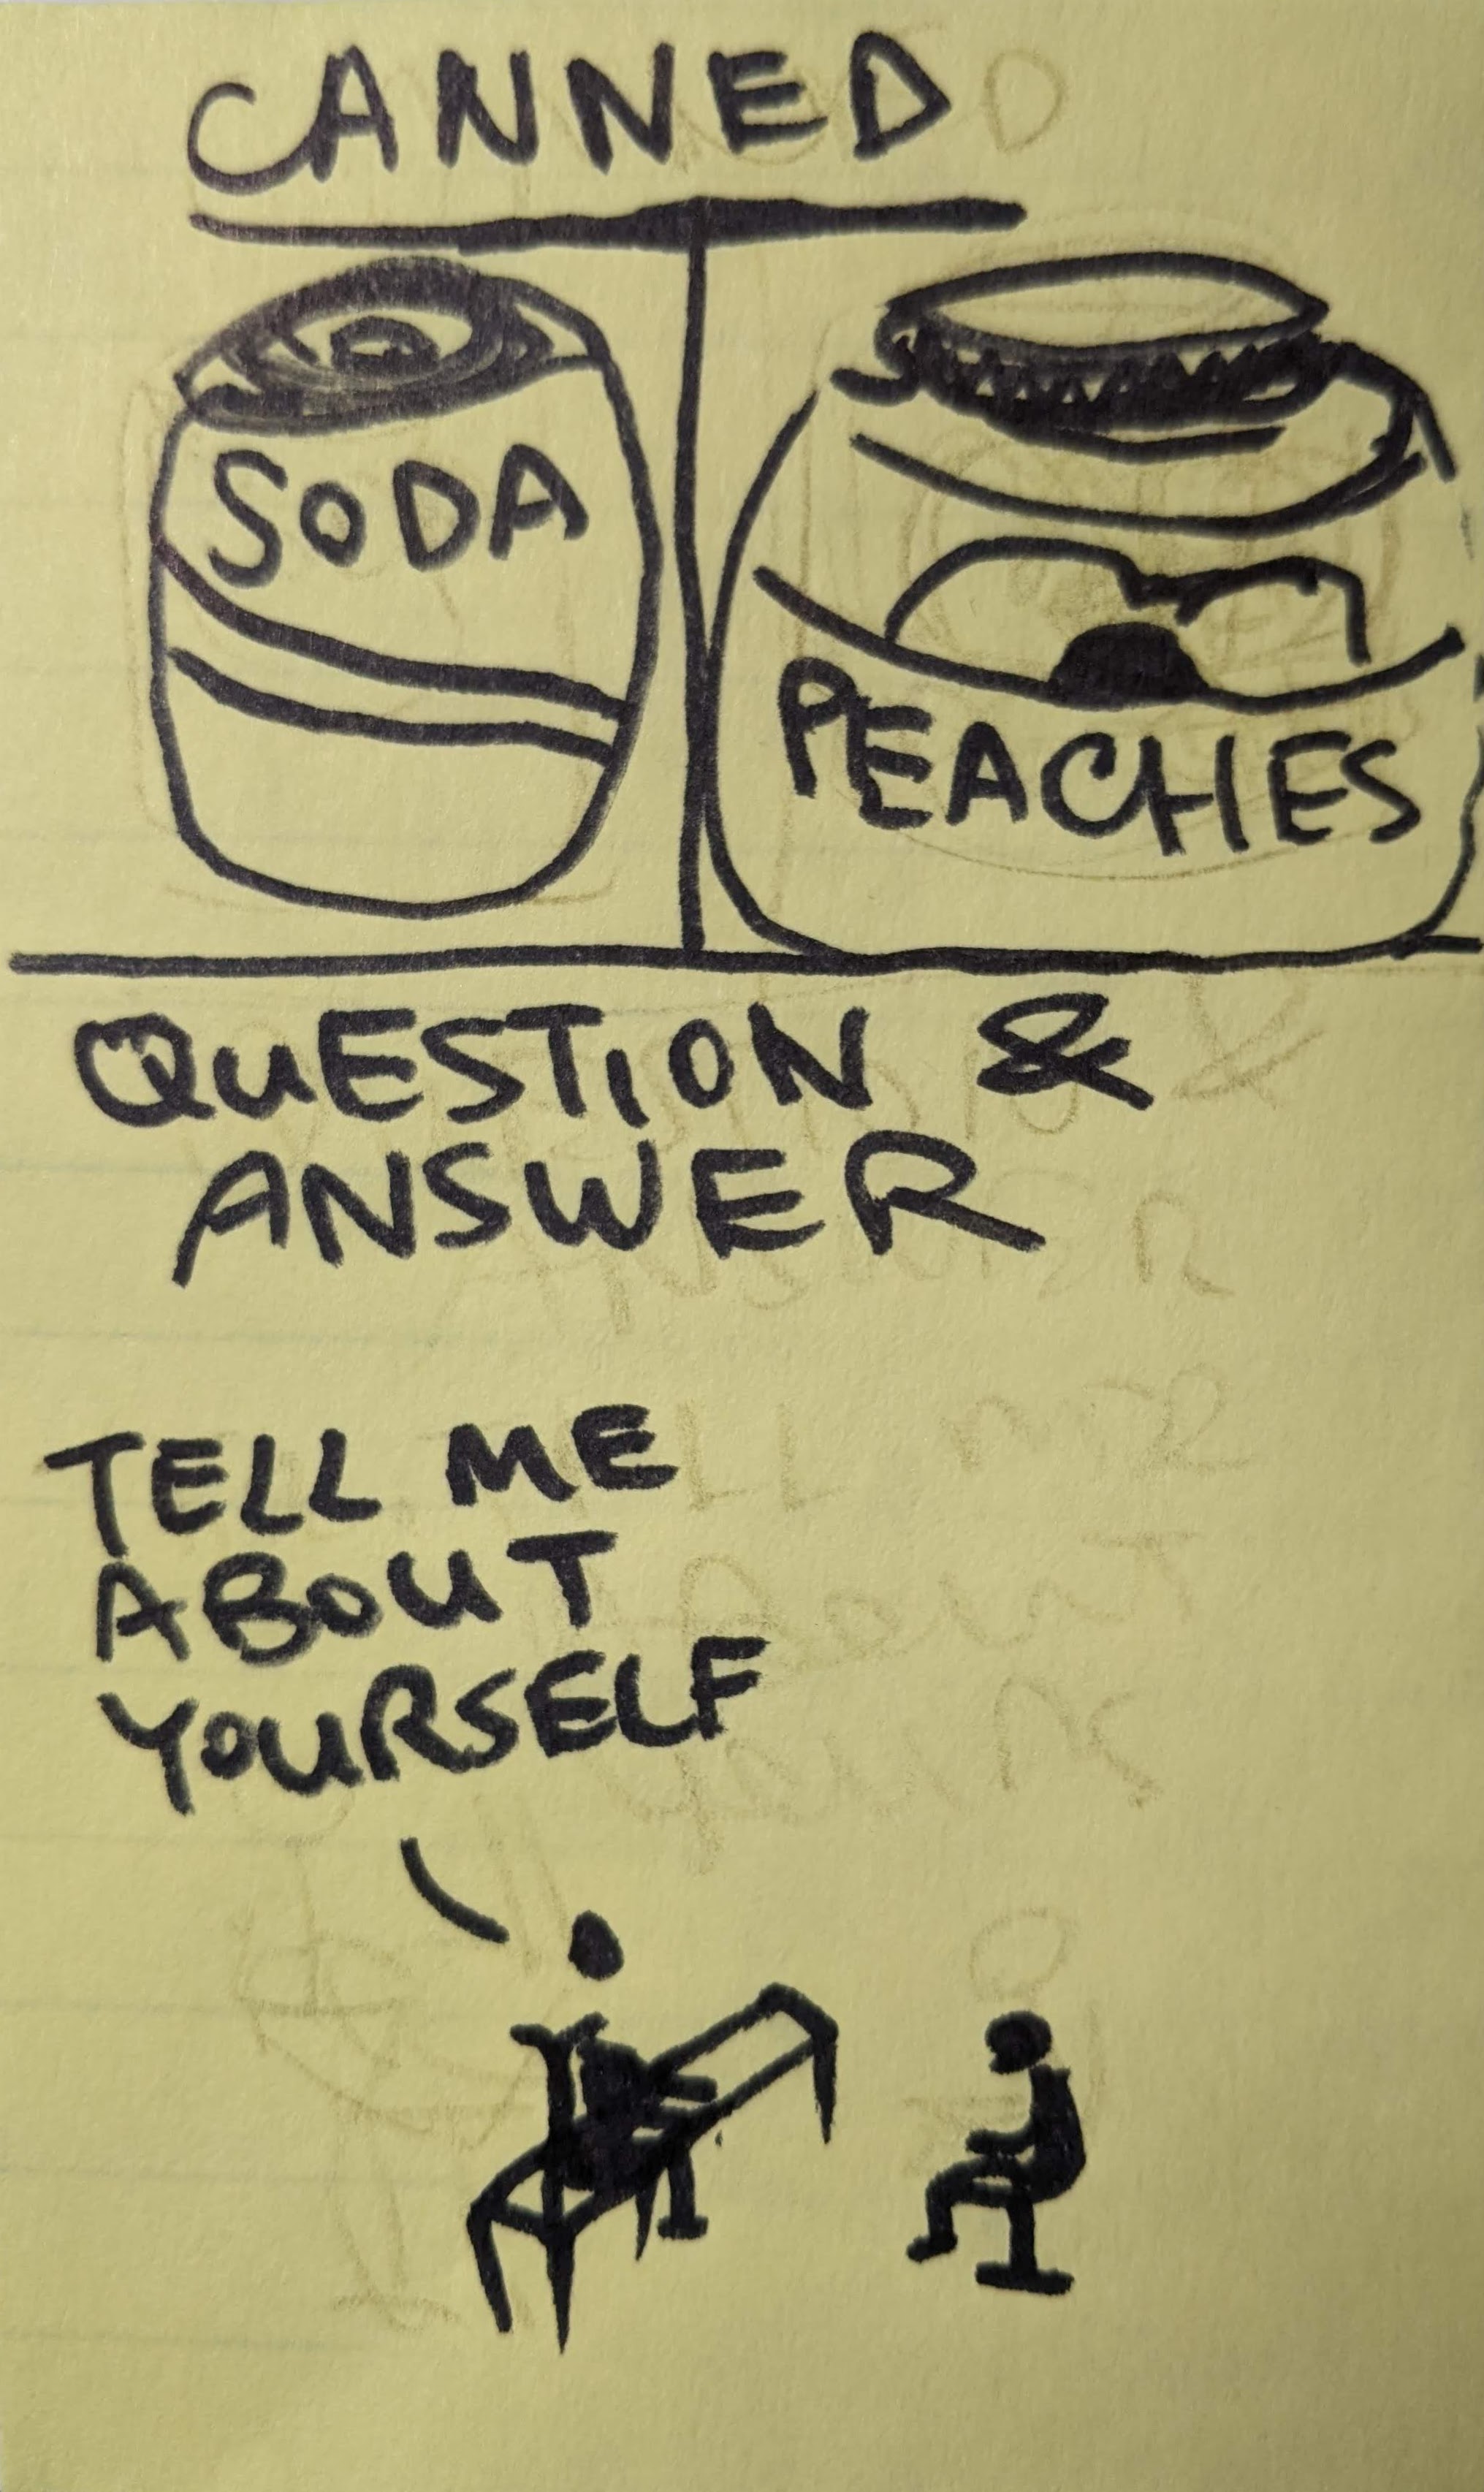 CANNED
SODA
PEACHES
QUESTION &
ANSWER
TELL ME
ABOUT
YOURSELF